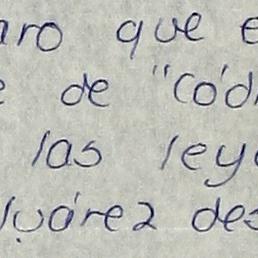 aro que e
e de "Cód
las leye
lvárez des